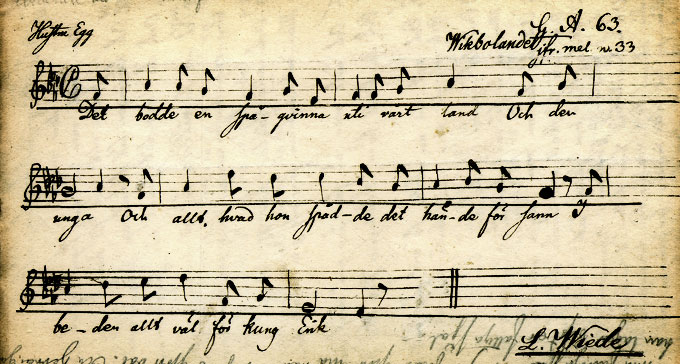 Hustru Egg
G. A. 63.
Wikbolandet
jfr. mel. n. 33
Det bodde en spå-qvinna uti vårt land Och den
unga Och allt, hvad hon spåd-de det hän-de för sann I
be-den allt väl för kung Erik
L. Wiede